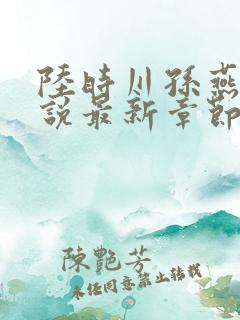 陸時川孫燕
說最新章節
陳艷芳
未任同意禁止转载